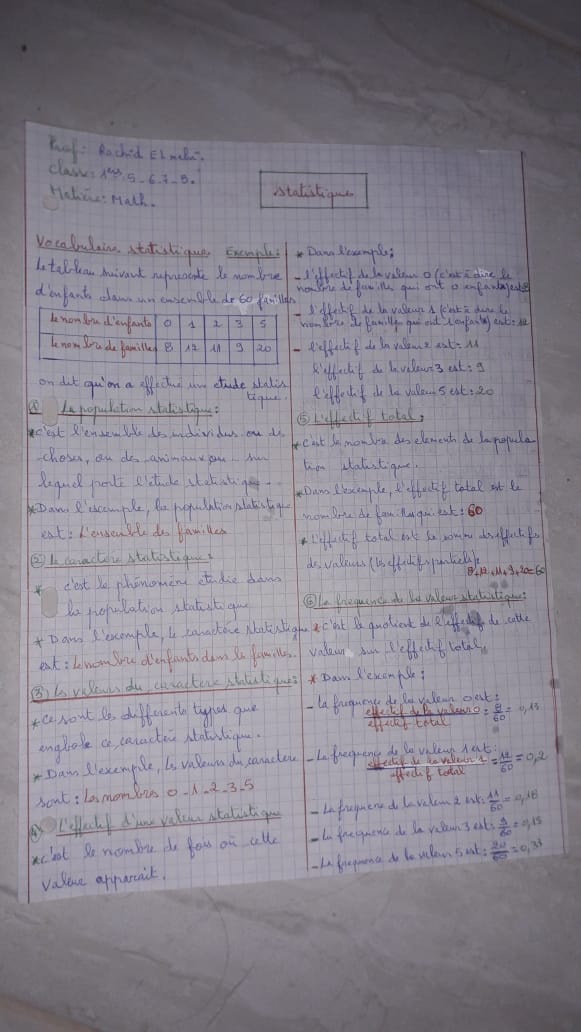 Prof: Rachid El mehi.
Classe: 1ere 5-6-7-8.
Matière: Math.
Statistique
Vocabulaire statistique Exemple:
Le tableau suivant represente le nombre
d'enfants dans un ensemble de 60 familles
le nombre d'enfants 0 1 2 3 5
le nombre de familles 8 12 11 9 20
on dit qu'on a effectué un etude statis
tique.
① La population statistique:
*c'est l'ensemble des individus ou des
choses, ou des animaux ou sur
lequel porte l'étude statistique.
*Dans l'exemple, la population statistique
est: L'ensemble des familles
② Le caractère statistique:
* c'est le phénomène etudie dans
la population statistique
* Dans l'exemple, le caractère statistique
est: Le nombre d'enfants dans les familles.
③ Les valeurs du caractère statistique:
*ce sont les différents types que
englobe ce caractère statistique.
*Dans l'exemple, les valeurs du caractère
sont: Les nombres 0-1-2-3-5
④ L'effectif d'une valeur statistique
*c'est le nombre de fois où cette
valeur apparait.
* Dans l'exemple;
- l'effectif de la valeur 0 (c'est à dire le
nombre de famille qui ont 0 enfants) est: 8
- l'effectif de la valeur 1 (c'est à dire le
nombre de famille qui ont 1 enfant) est: 12
- l'effectif de la valeur 2 est: 11
l'effectif de la valeur 3 est: 9
l'effectif de la valeur 5 est: 20
⑤ L'effectif total:
*c'est le nombre des elements de la popula
tion statistique.
*Dans l'exemple, l'effectif total est le
nombre de familles qui est: 60
* L'effectif total est la somme des effectifs
des valeurs (les effectifs partiels):
8+12+11+9+20=60
⑥ La frequence de la valeur statistique:
*c'est le quotient de l'effectif de cette
valeur sur l'effectif total
* Dans l'exemple;
- La frequence de la valeur 0 est:
effectif de la valeur 0 / effectif total = 8/60 = 0,13
- La frequence de la valeur 1 est:
effectif de la valeur 1 / effectif total = 12/60 = 0,2
- La frequence de la valeur 2 est: 11/60 = 0,18
- La frequence de la valeur 3 est: 9/60 = 0,15
- La frequence de la valeur 5 est: 20/60 = 0,33